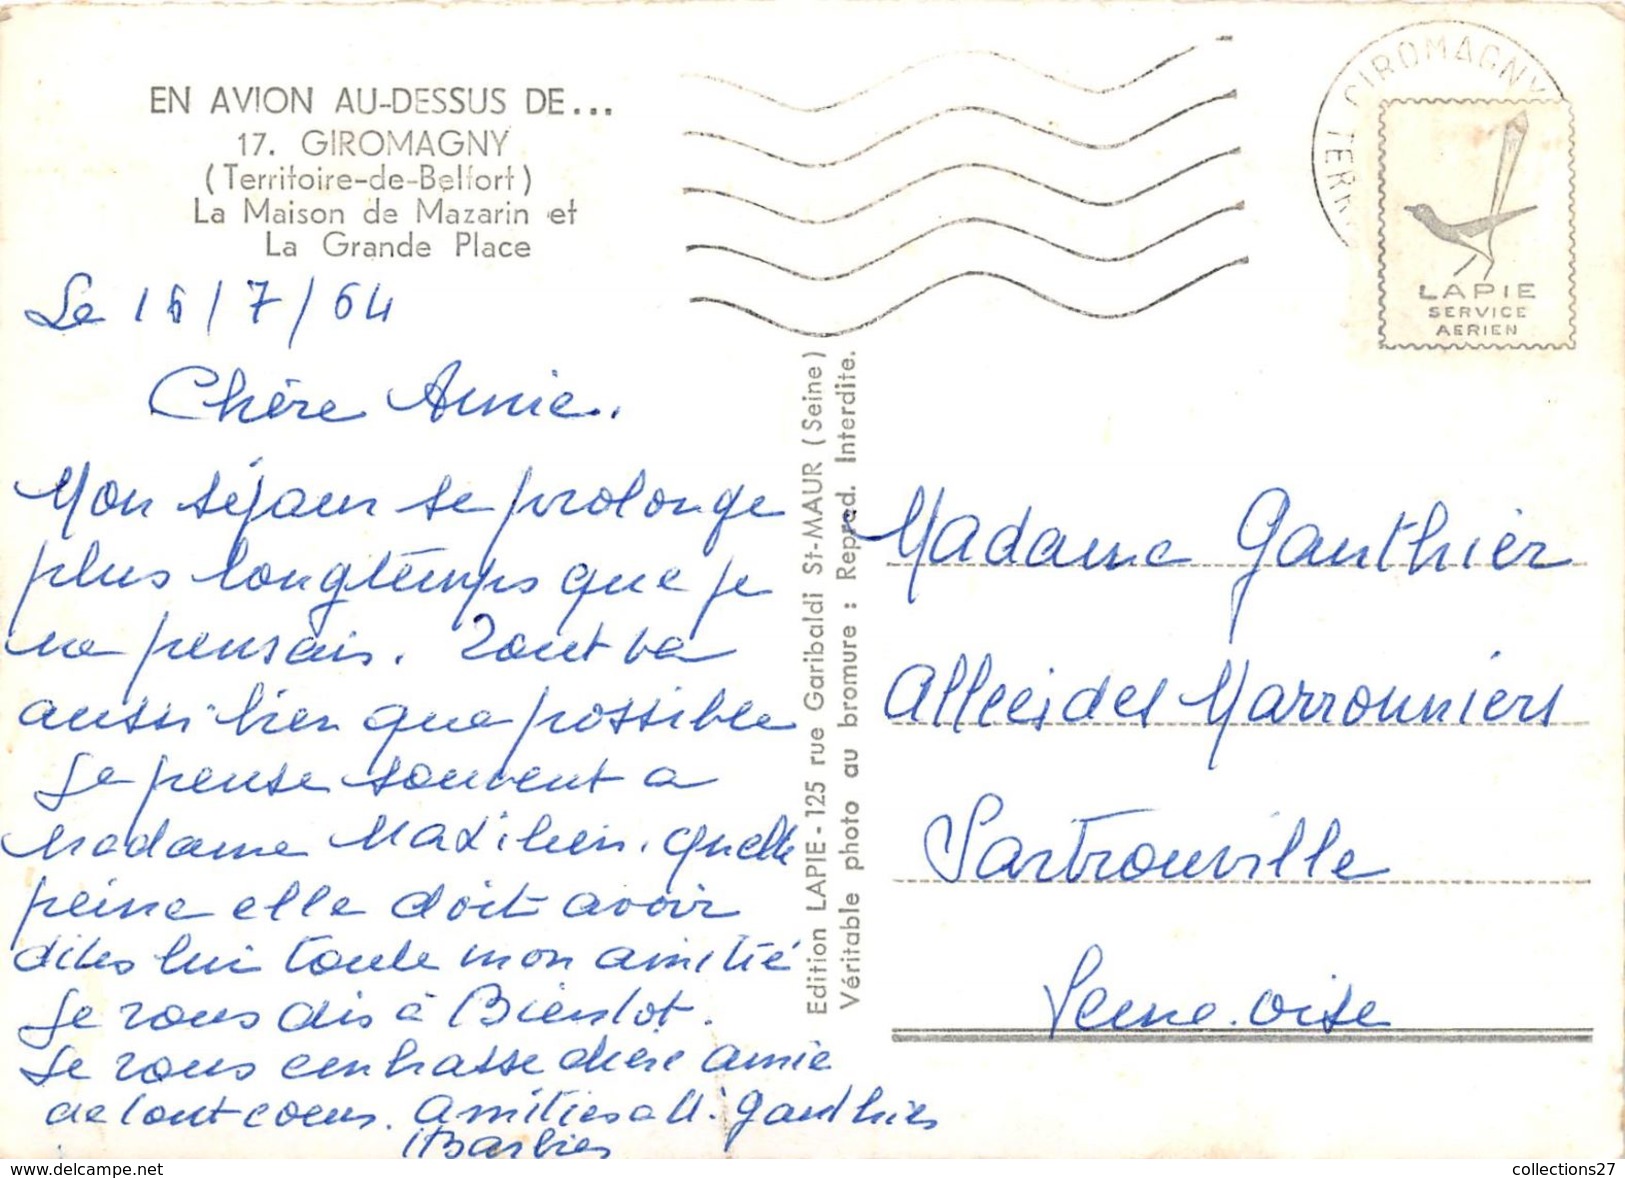 EN AVION AU-DESSUS DE...
17. GIROMAGNY
(Territoire-de-Belfort)
La Maison de Mazarin et
La Grande Place
Le 16/7/64
Chère Amie.
Mon séjour se prolonge
plus longtemps que je
ne pensais. Tout va
aussi bien que possible
Je pense souvent a
Madame quelle
peine elle doit avoir
dites lui toute mon amitié
Je vous dis à Bientot.
Je vous embrasse chère amie
de tout coeur. Amitiés a M. Gauthier
Edition LAPIE - 125 rue Garibaldi St-MAUR (Seine)
Véritable photo au bromure : Reprod. Interdite.
GIROMAGNY
TERR
LAPIE
SERVICE
AERIEN
Madame Gauthier
Allées des Marronniers
Sartrouville
Seine-oise
collections27